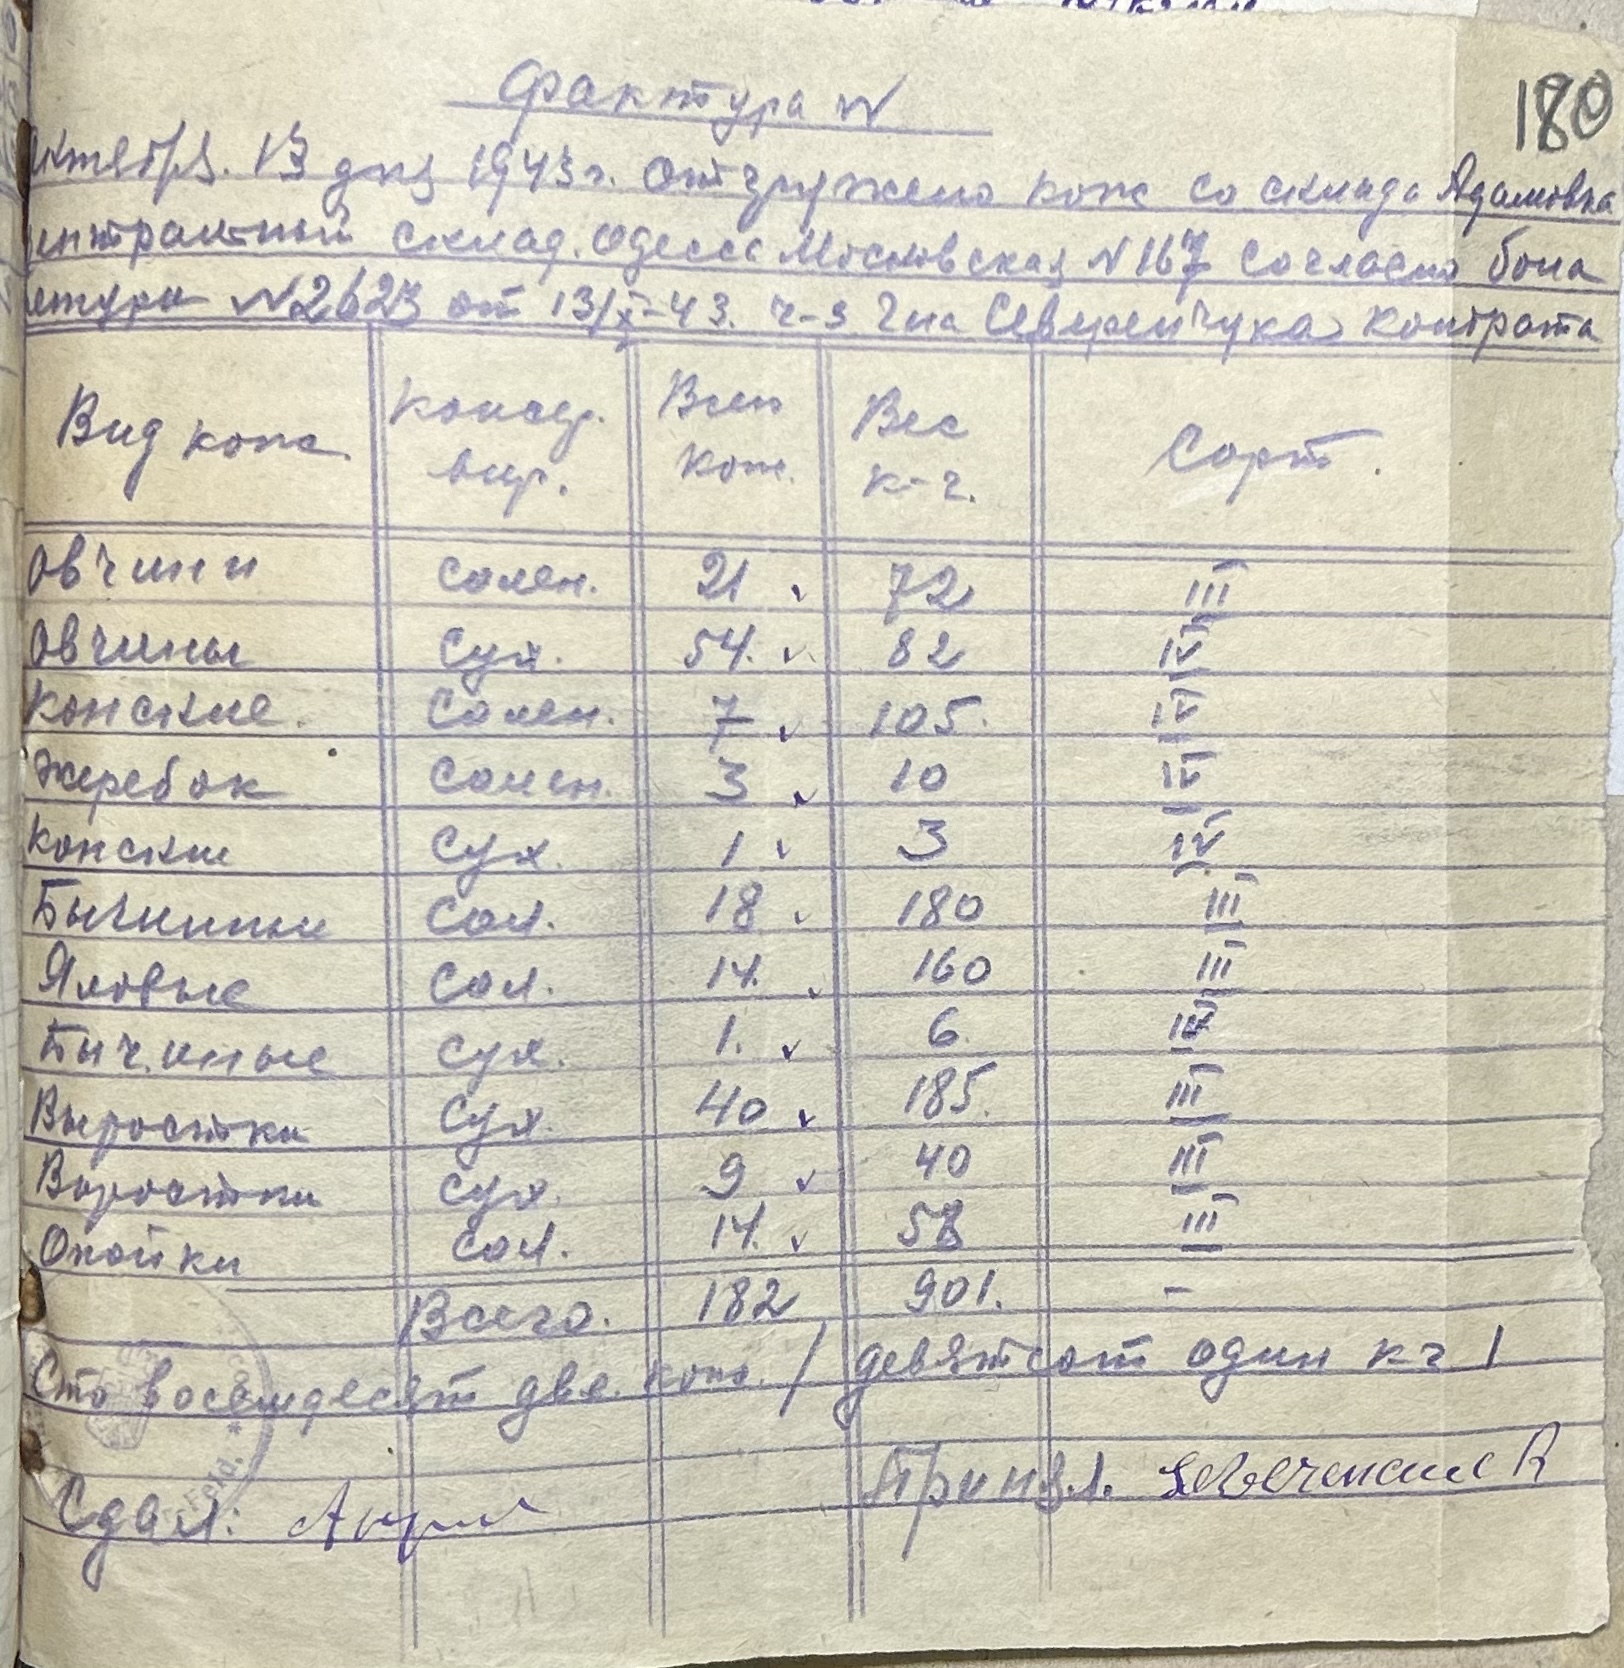 180
Фактура №
октября. 13 дня 1943 г. Отгружено кож со склада Адамовка
центральный склад. Одесса Московская № 167 согласно бона
№ 2623 от 13/X-43. ч-з г-на Северенчука Контрата
Вид кож. Консер. вир. Всего кож. Вес к-г. Сорт.
Овчини солен. 21 72 III
Овчины сух. 54. 82 IV
Конские. солен. 7 105. IV
Жеребок солен. 3 10 IV
Конские сух. 1 3 IV
Бычинные сол. 18 180 III
Яловые сол. 14. 160 III
Бычиные сух. 1. 6. IV
Выростки сух. 40 185. III
Выростки сух. 9 40 III
Опойки сол. 14. 58 III
Всего. 182 901. -
Сто восемдесят две. кож. / девятсот один кг /
Сдал: Принял.